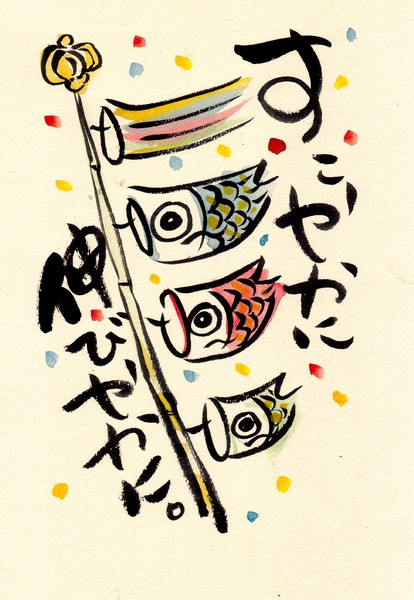 すこやかに
伸びやかに。